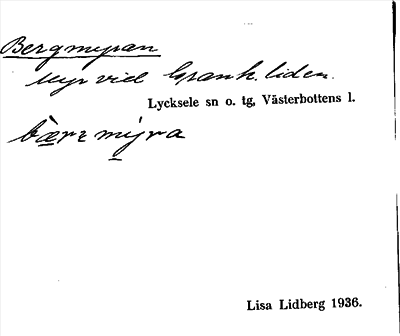 Bergmyran
Myr vid Granh.liden.
Lycksele sn o. tg, Västerbottens l.
bærʒmýra
Lisa Lidberg 1936.